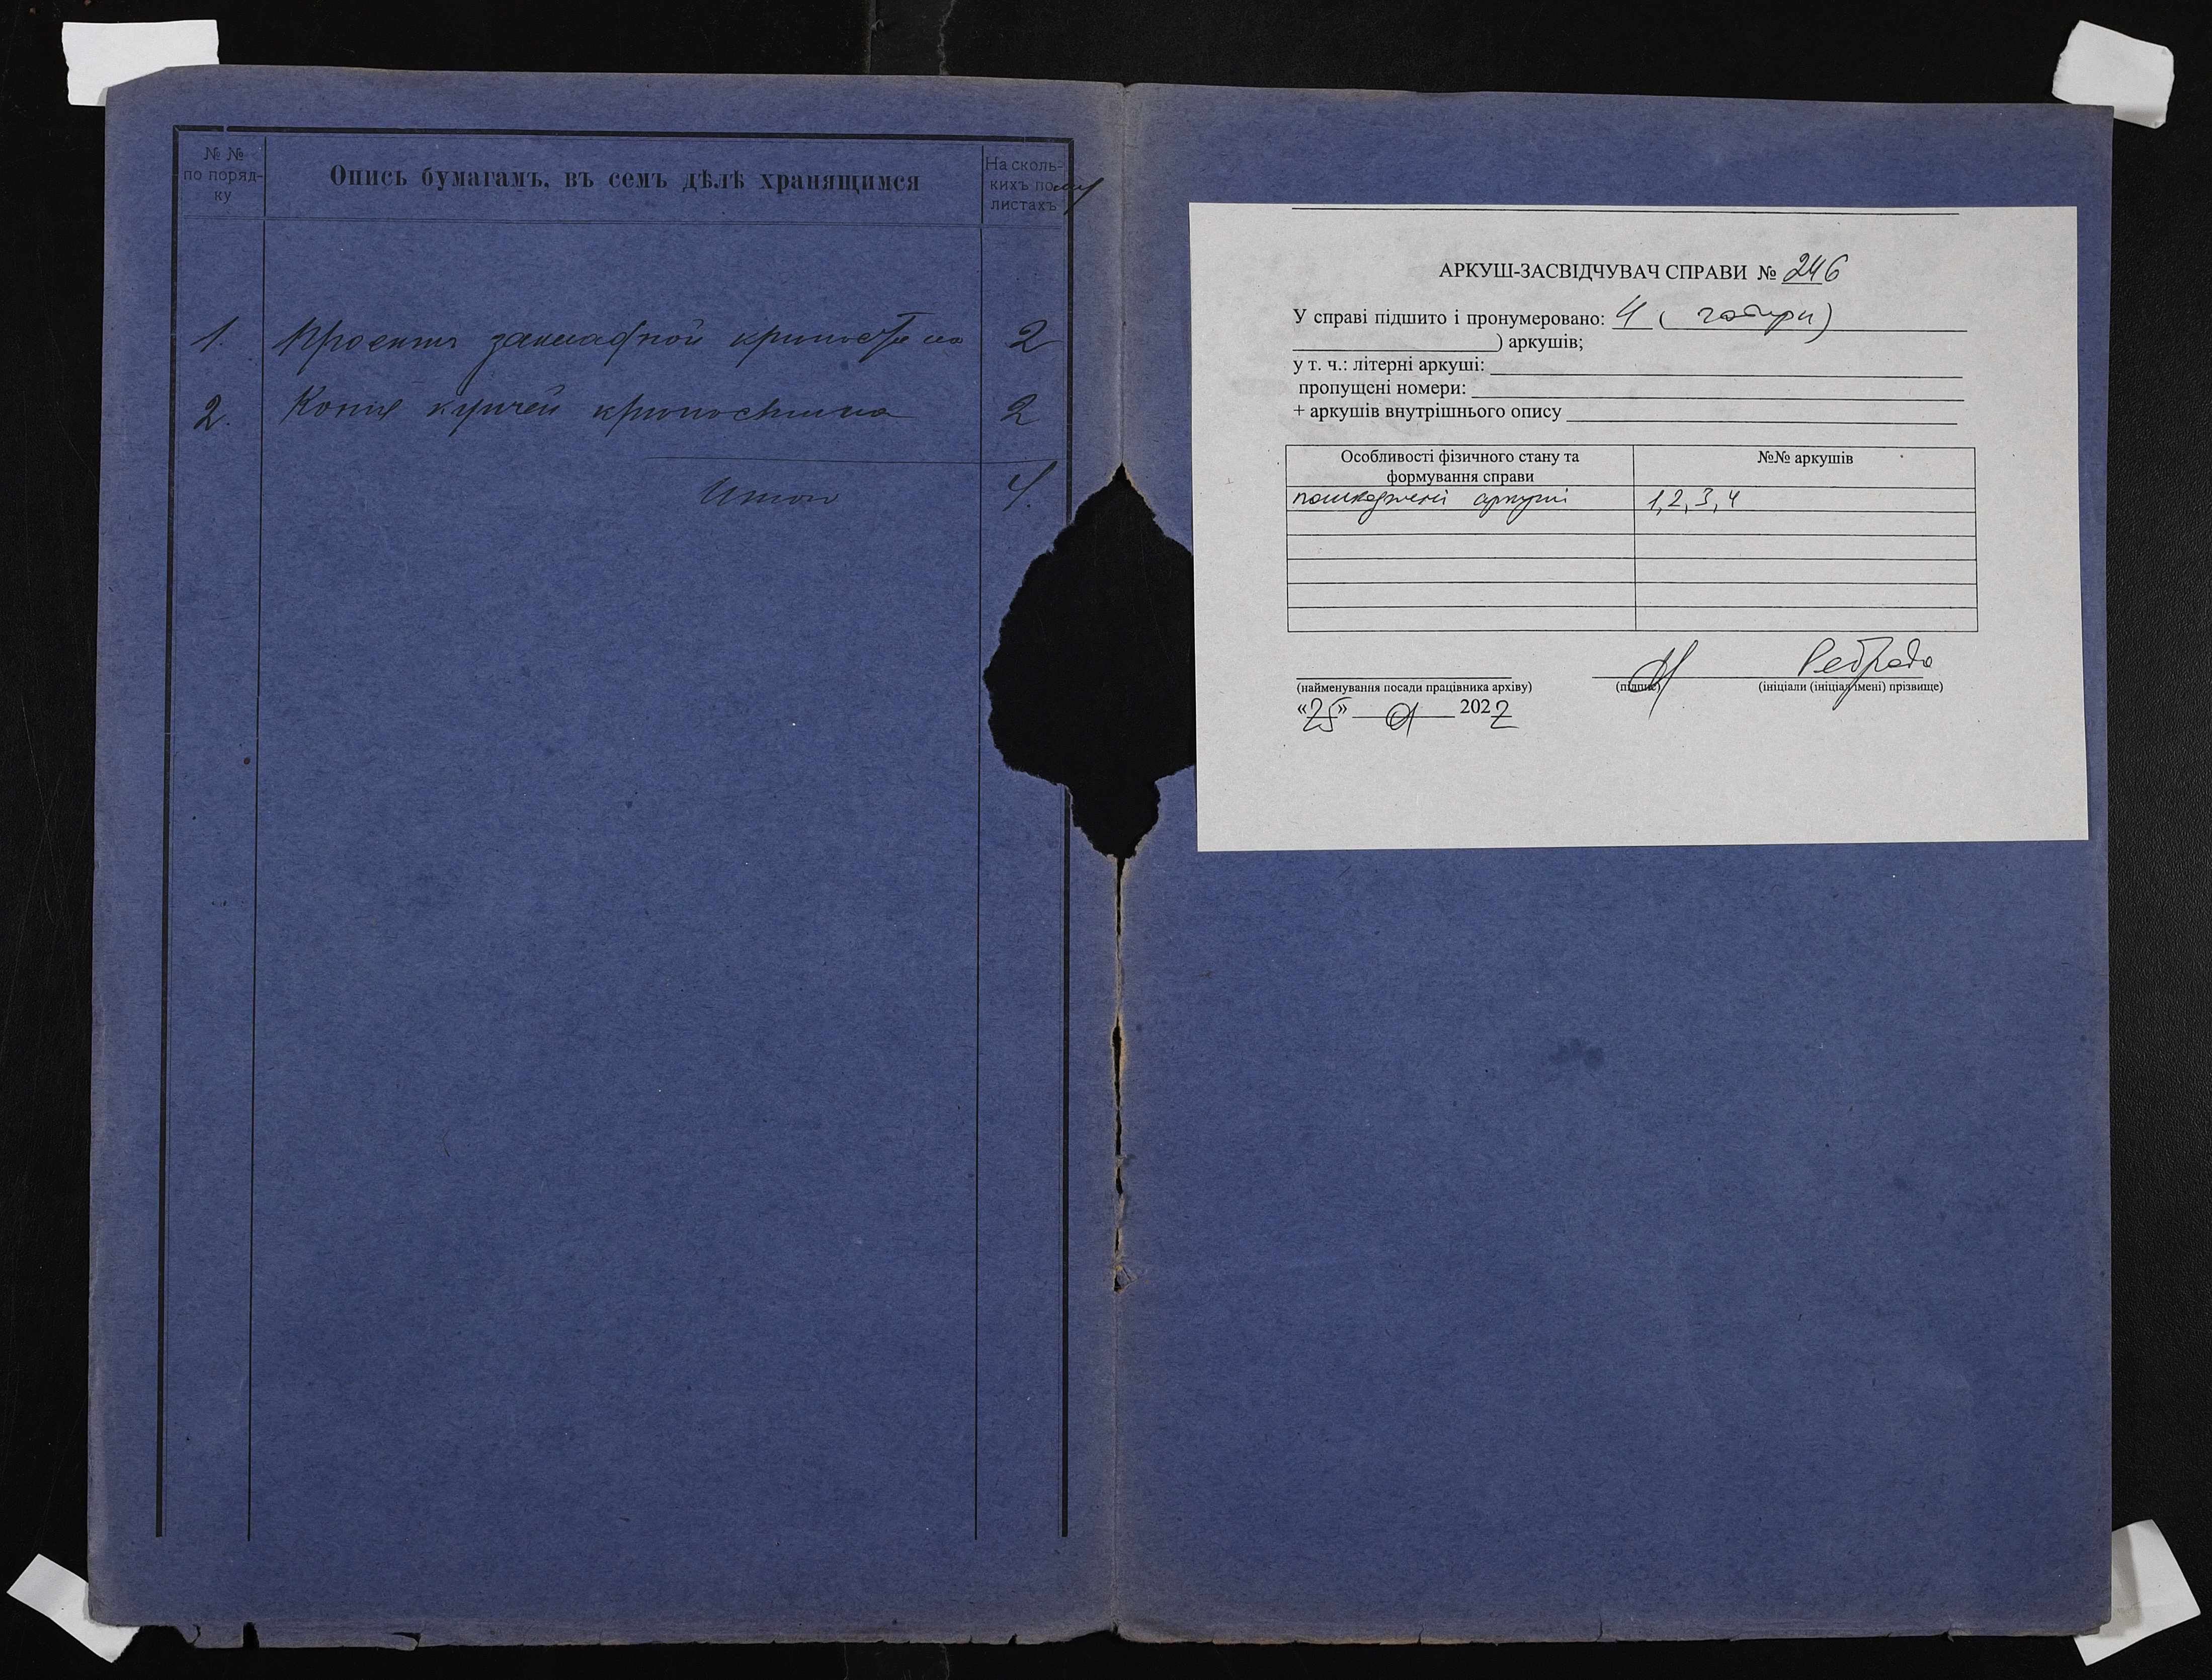 № №
по поряд-
ку
Опись бумагамъ, въ семъ дѣлѣ хранящимся
На сколь-
кихъ по
листахъ
1. Проектъ закладной крѣпости 2
2. Копія купчей крѣпости на 2
Итого 4.
АРКУШ-ЗАСВІДЧУВАЧ СПРАВИ № 246
У справі підшито і пронумеровано: 4 ( чотири)
) аркушів;
у т. ч.: літерні аркуші:
пропущені номери:
+ аркушів внутрішнього опису
Особливості фізичного стану та
формування справи
№№ аркушів
пошкоджені аркуші 1,2,3,4
(найменування посади працівника архіву) (підпис) (ініціали (ініціал імені) прізвище)
«25» 01 2022